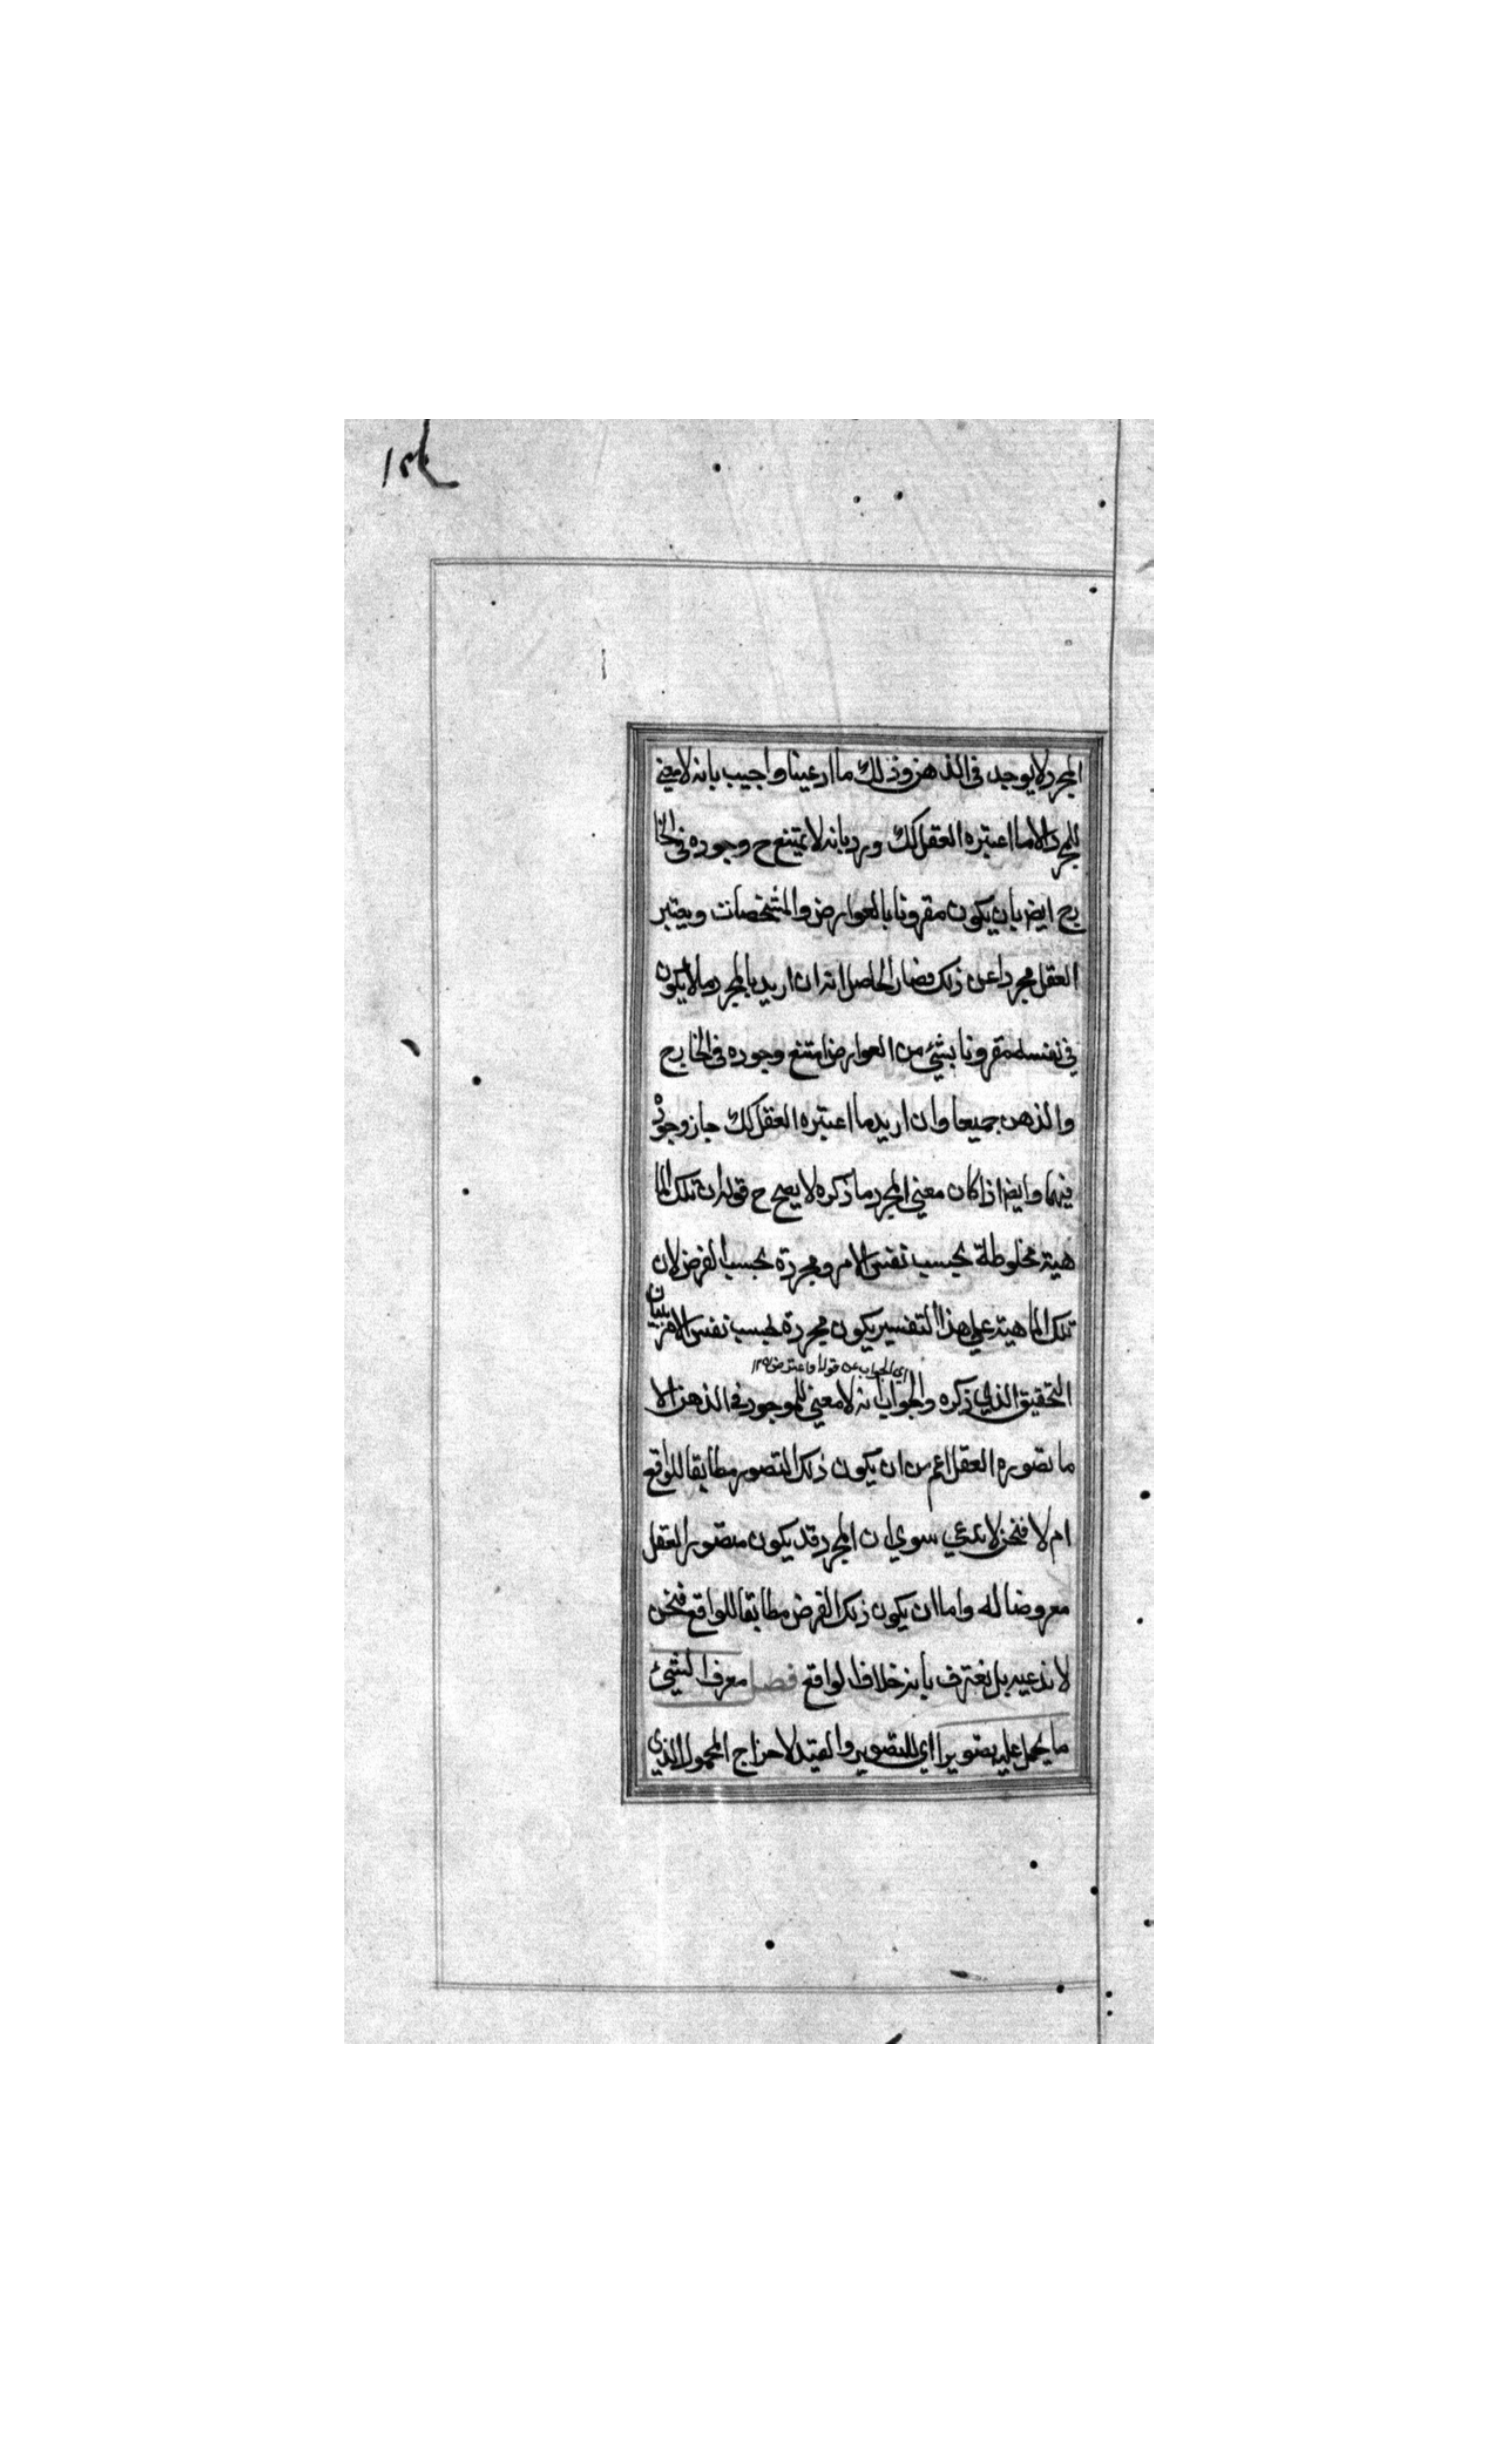 المجرد لا يوجد فى الذهن وذلك ما ادعينا واجيب بانه لا معنى
للمجرد الا ما اعتبره العقل كك ورد بانه لا يمتنع ح وجوده فى الخا
رج ايض بان يكون مقرونا بالعوارض والمشخصات ويعتبر
العقل مجردا عن ذلك فصار الحاصل انه ان اريد بالمجرد ما لا يكون
في نفسه مقرونا بشئ من العوارض امتنع وجوده فى الخارج
والذهن جميعا وان اريد ما اعتبره العقل كك جاز وجوده
فيهما وايض اذا كان معني المجرد ما ذكره لا يصح ح قوله ان تلك الما
هية مخلوطة بحسب نفس الامر ومجردة بحسب الفرض لان
تلك الماهية علي هذا التفسير يكون مجردة بحسب نفس الامر
اي الجواب عن قوله واعترض ١٢
التحقيق الذي ذكره والجواب انه لا معني للموجود فى الذهن الا
ما تصوره العقل اعم من ان يكون ذلك التصور مطابقا للواقع
ام لا فنحن لا ندعي سوي ان المجرد قد يكون متصور العقل
معروضا له واما ان يكون ذلك الفرض مطابقا للواقع فنحن
لا ندعيه بل نعترف بانه خلاف الواقع فصل معرف الشئ
ما يحمل عليه تصويرا اي للتصوير والقيد لاخراج المحمول الذي